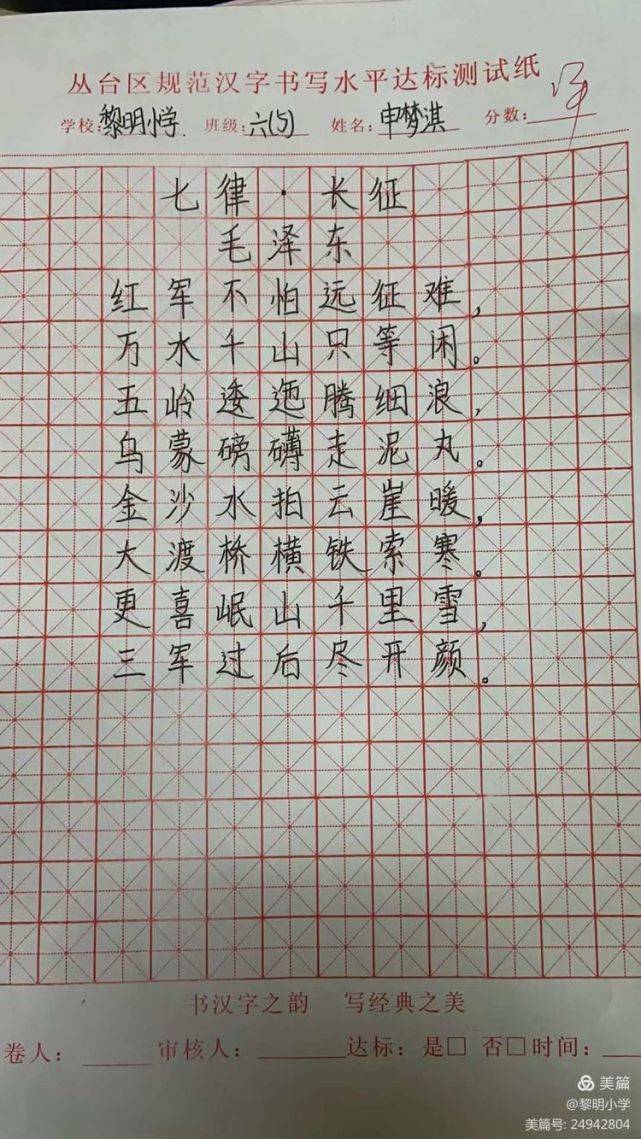 丛台区规范汉字书写水平达标测试纸
学校:黎明小学 班级:六(5) 姓名:申梦淇 分数:
七律·长征
毛泽东
红军不怕远征难,
万水千山只等闲。
五岭逶迤腾细浪,
乌蒙磅礴走泥丸。
金沙水拍云崖暖,
大渡桥横铁索寒。
更喜岷山千里雪,
三军过后尽开颜。
书汉字之韵 写经典之美
卷人: 审核人: 达标:是□ 否□时间:
美篇
@黎明小学
美篇号: 24942804